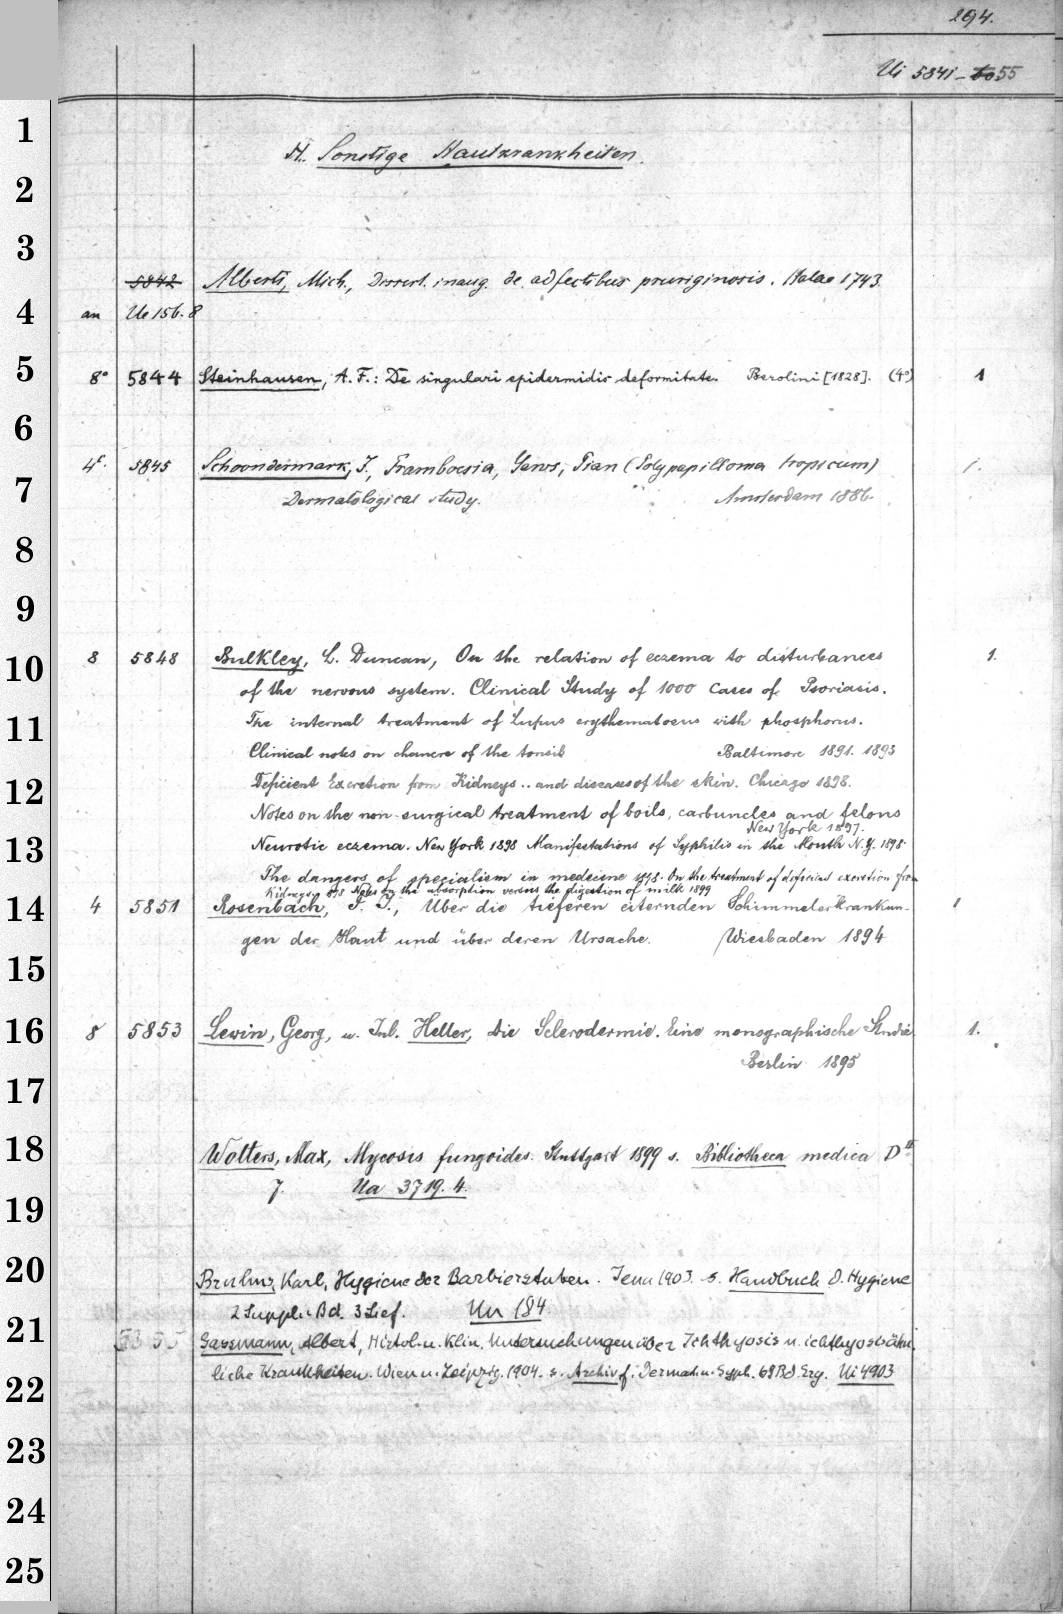 294.
Ui 5841-55
1
H. Sonstige Hautkrankheiten.
2
3
5842 Alberti, Mich., Dissert. inaug. de adfectibus pruriginosis. Halae 1743.
4 an Ue 156.8
5 8° 5844 Steinhausen, A. F.: De singulari epidermidis deformitate. Berolini [1828]. (4°) 1
6
4° 5845 Schoondermark, J., Framboesia, Yaws, Pian (Polypapilloma tropicum) 1.
7 Dermatological study. Amsterdam 1886.
8
9
10 8 5848 Bulkley, L. Duncan, On the relation of eczema to disturbances 1.
of the nervous system. Clinical Study of 1000 Cases of Psoriasis.
11 The internal treatment of Lupus erythematoeus with phosphorus.
Clinical notes on chancre of the tonsils Baltimore 1891. 1893
12 Deficient Excretion from Kidneys .. and diseases of the skin. Chicago 1898.
Notes on the non-surgical treatment of boils, carbuncles and felons
New York 1897.
13 Neurotic eczema. New York 1898 Manifestations of Syphilis in the Mouth N.Y. 1898.
The dangers of specialism in medecine 1898. On the treatment of deficient excretion from
Kidneys 898 Notes on the absorption versus the digestion of milk 1899
14 4 5851 Rosenbach, F. J., Über die tieferen eiternden Schimmelerkrankun- 1
gen der Haut und über deren Ursache. Wiesbaden 1894
15
16 8 5853 Lewin, Georg, u. Jul. Heller, Die Sclerodermie. Eine monographische Studie. 1.
Berlin 1895
17
18 Wolters, Max, Mycosis fungoides. Stuttgart 1899 s. Bibliotheca medica D II
7. Ua 3719.4.
19
20 Bruhns, Karl, Hygiene der Barbierstuben. Jena 1903. s. Handbuch d. Hygiene
2 Suppl. Bd. 3 Lief. Un 184
21 Gassmann, Albert, Histol. u. Klin. Untersuchungen über Ichthyosis u. ichthyosisähn
22 liche Krankheiten. Wien u. Leipzig. 1904. s. Archiv f. Dermat. u. Syph. 68 Bd. Erg. Ui 4903
23
24
25